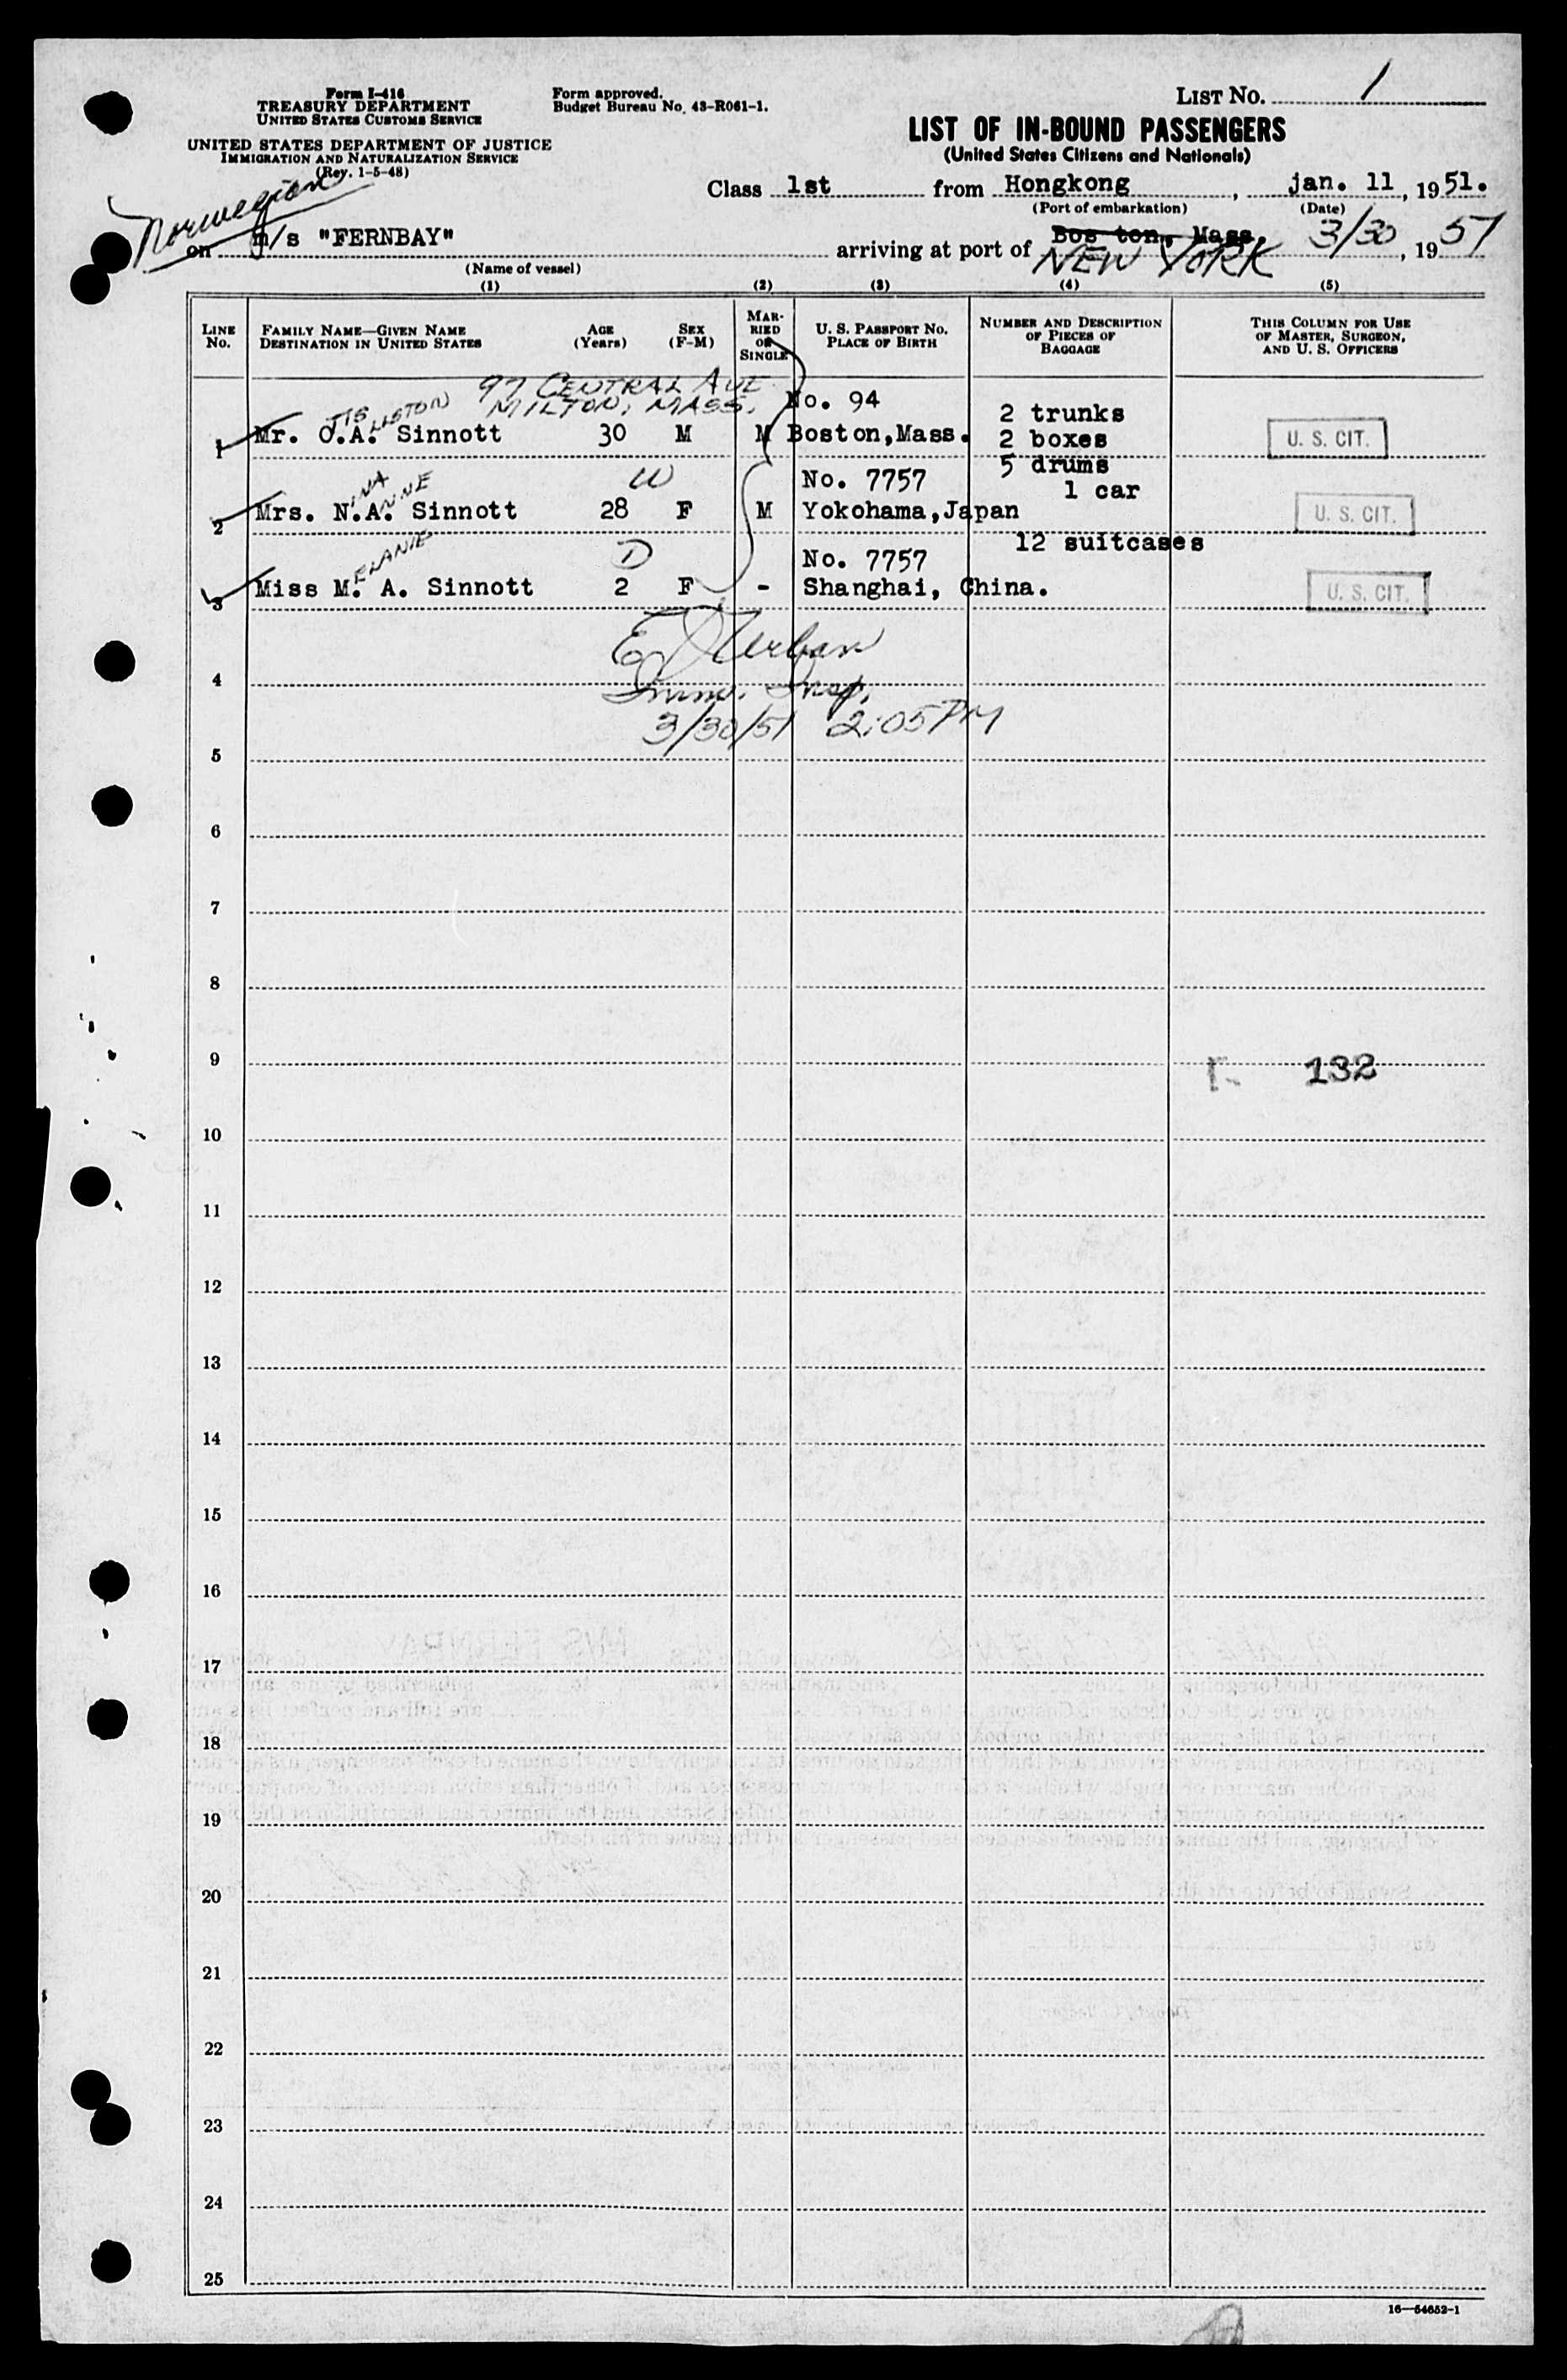 Form I-416
TREASURY DEPARTMENT
UNITED STATES CUSTOMS SERVICE
UNITED STATES DEPARTMENT OF JUSTICE
IMMIGRATION AND NATURALIZATION SERVICE
(Rev. 1-5-48)
Form approved.
Budget Bureau No. 43-R061-1.
LIST NO. 1
LIST OF IN-BOUND PASSENGERS
(United States Citizens and Nationals)
Class 1st from Hongkong, jan. 11, 1951.
(Port of embarkation) (Date)
Norwegian
on m/s "FERNBAY" arriving at port of Bos ton, Mass. 3/30, 1951
NEW YORK
(Name of vessel)
(1) (2) (3) (4) (5)
LINE NO. FAMILY NAME—GIVEN NAME DESTINATION IN UNITED STATES AGE (Years) SEX (F-M) MARRIED OR SINGLE U. S. PASSPORT NO. PLACE OF BIRTH NUMBER AND DESCRIPTION OF PIECES OF BAGGAGE THIS COLUMN FOR USE OF MASTER, SURGEON, AND U. S. OFFICERS
97 CENTRAL AVE
MILTON, MASS. No. 94 2 trunks
TIS LLSTON
1 Mr. O.A. Sinnott 30 M M Boston,Mass. 2 boxes U. S. CIT.
5 drums
INA NNE W No. 7757 1 car
2 Mrs. N.A. Sinnott 28 F M Yokohama,Japan U. S. CIT.
12 suitcases
ELANIE D No. 7757
3 Miss M. A. Sinnott 2 F - Shanghai, China. U. S. CIT.
E J Urban
4 Immo. Insp.
3/30/51 2:05PM
5
6
7
8
9 132
10
11
12
13
14
15
16
17
18
19
20
21
22
23
24
25
16—54652-1